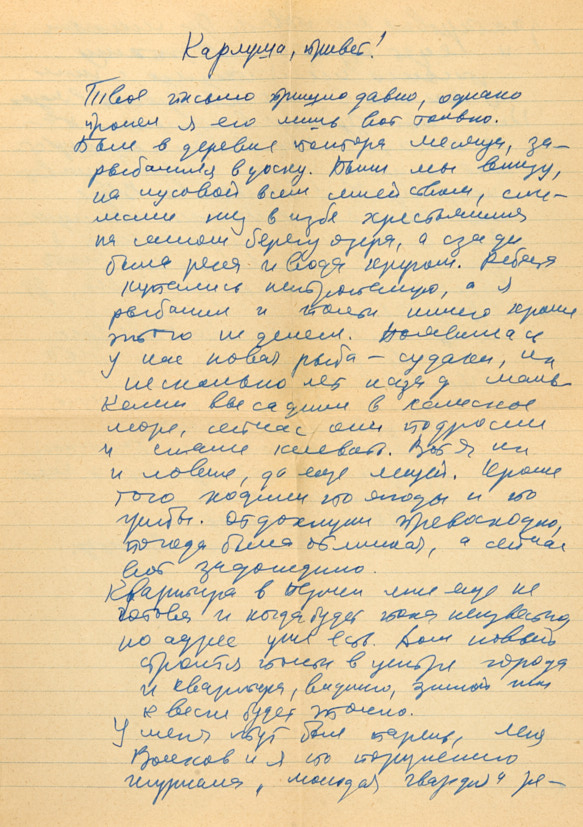 Карлуша, привет!
Твоё письмо пришло давно, однако
прочёл я его лишь вот только.
Был в деревне полтора месяца, за-
рыбачился в доску. Были мы внизу,
на Чусовой всем семейством, сни-
мали низ в избе крестьянина
на самом берегу озера, а сзади
была река и вода кругом. Ребята
купались непрестанно, а я
рыбачил и почти ничего кроме
этого не делал. Появилась
у нас новая рыба — судаки, их
несколько лет назад маль-
ками высадили в Камское
море, сейчас они подросли
и стали клевать. Вот я их
и ловил, да ещё лещей. Кроме
того ходили по ягоды и по
грибы. Отдохнули превосходно,
погода была отличная, а сейчас
вот задождило.
Квартира в Перми мне ещё не
готова и когда будет пока неизвестно,
но адрес уже есть. Дом новый
строится почти в центре города
и квартира, видимо, зимой или
к весне будет точно.
У меня тут был парень, Лёня
и я по поручению
журнала „Молодая гвардия" ре-